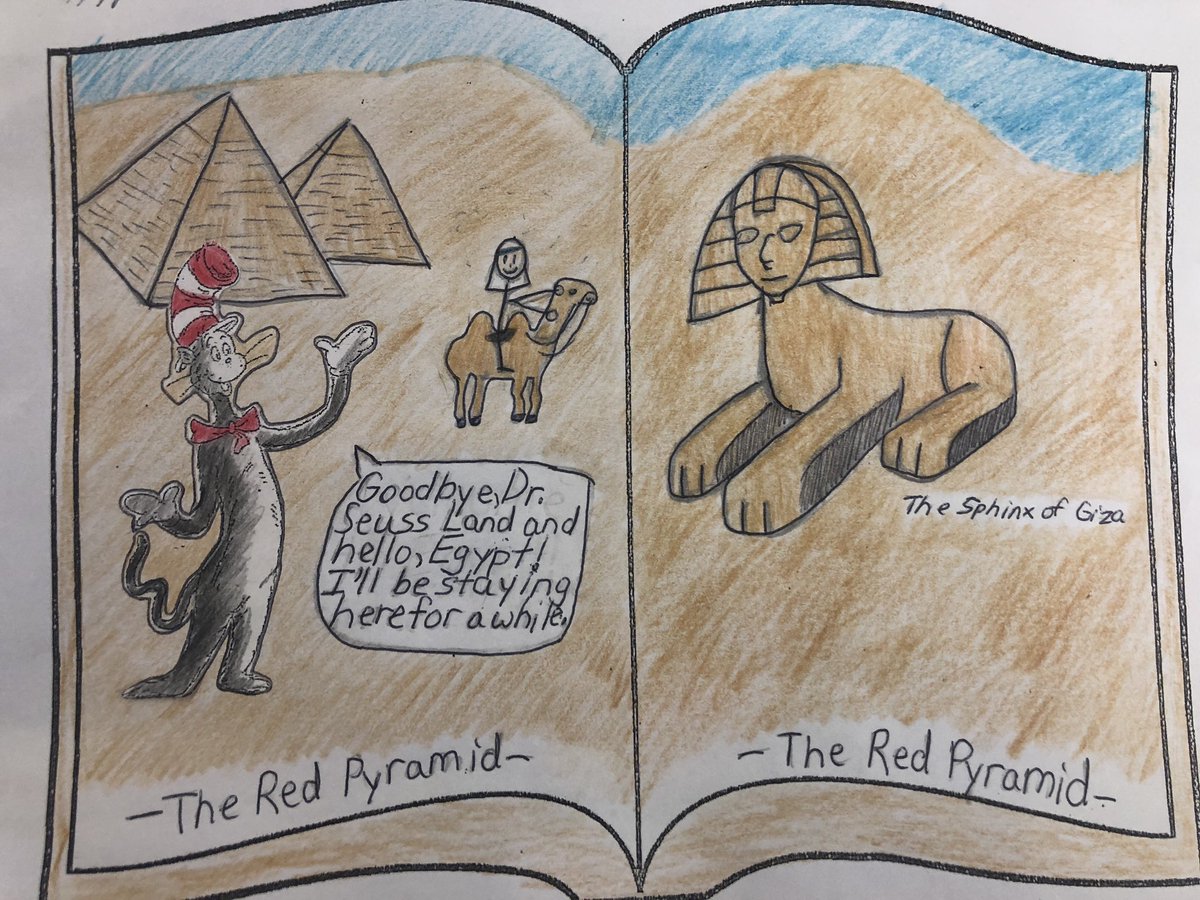 Goodbye, Dr.
Seuss Land and
hello, Egypt!
I'll be staying
here for a while.
-The Red Pyramid-
The Sphinx of Giza
-The Red Pyramid-